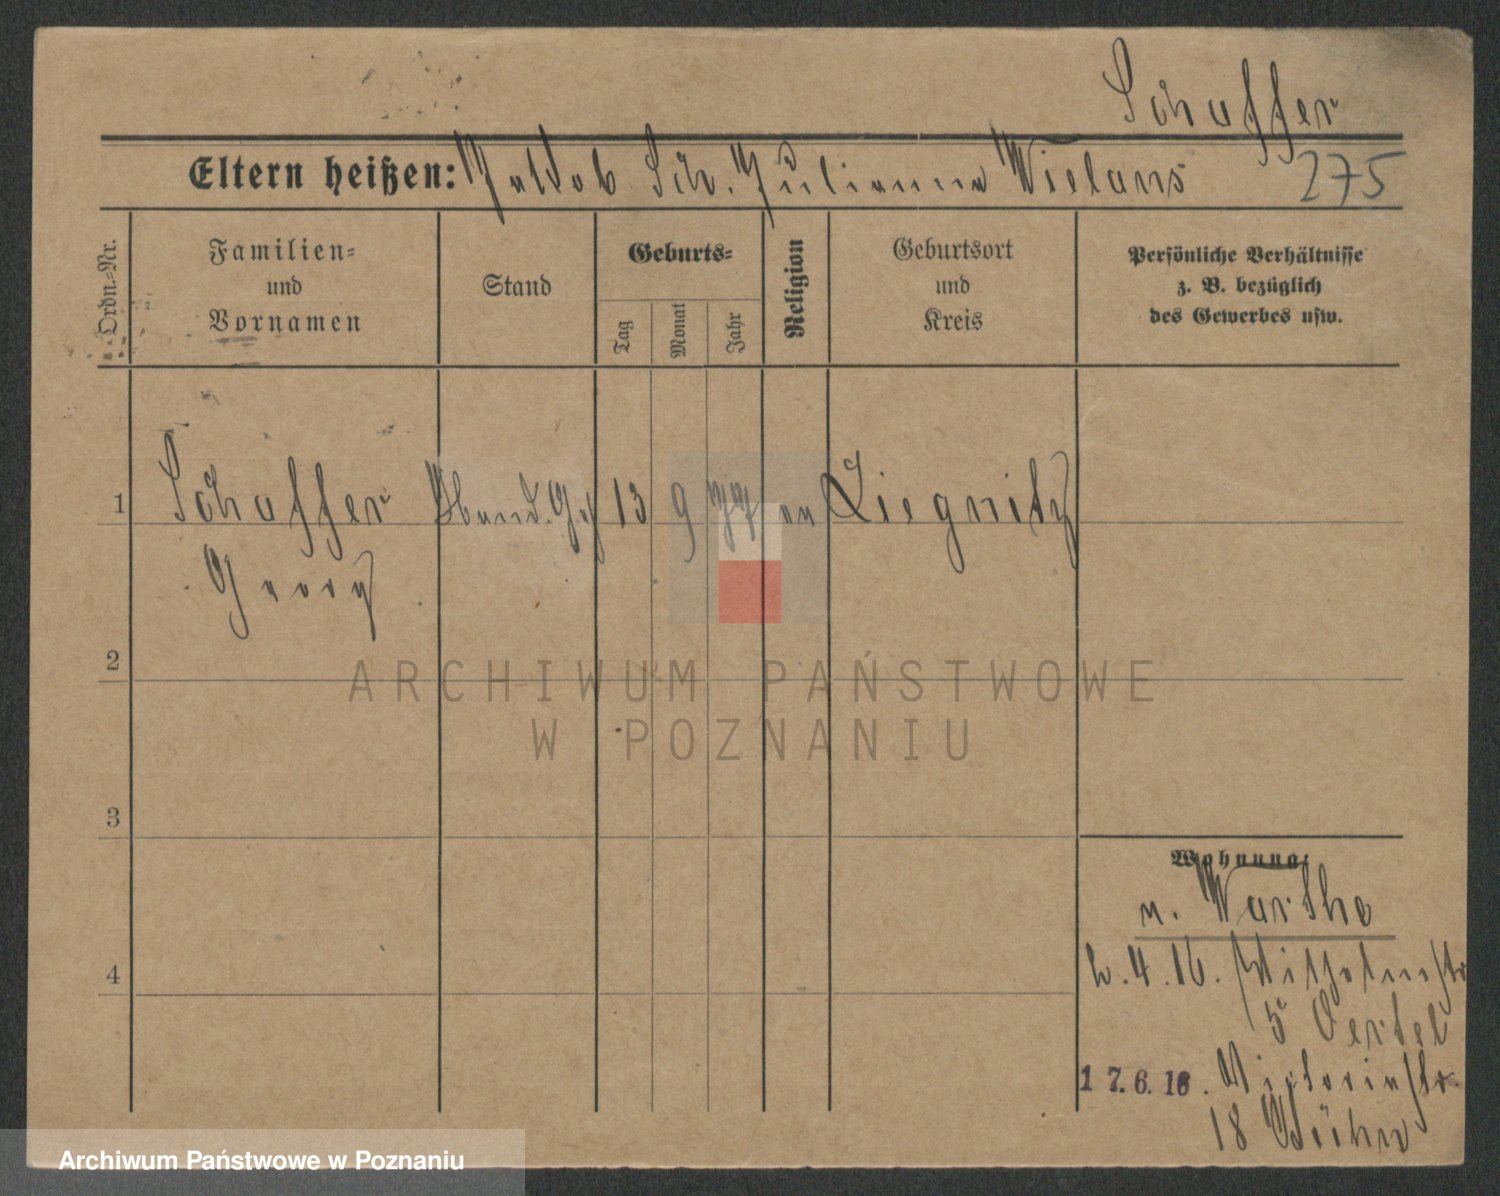 Schaffer
Eltern heißen: Jakob Sch. Julianna Wielans
275
Ordn.-Nr.
Familien-
und
Vornamen
Stand
Geburts-
Tag
Monat
Jahr
Religion
Geburtsort
und
Kreis
Persönliche Verhältnisse
z. B. bezüglich
des Gewerbes usw.
1
Schaffer
13
9
77
Liegnitz
Georg
2
ARCHIWUM PAŃSTWOWE
W POZNANIU
3
Wohnung:
n. Warthe
4
4.16. Wilhelmstr
5 Oertel
17.6.16. Victoriastr.
18
Archiwum Państwowe w Poznaniu